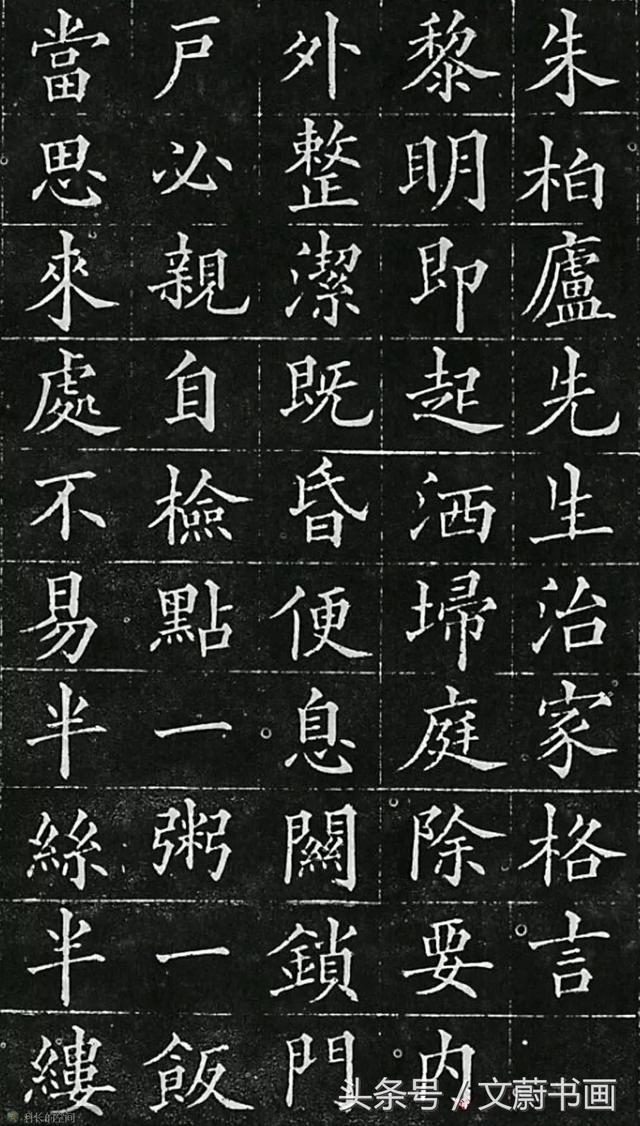 朱柏廬先生治家格言
黎明即起洒埽庭除要内
外整潔既昏便息關鎖門
戸必親自檢點一粥一飯
當思來處不易半絲半縷
头条号/文蔚书画
科长的空间